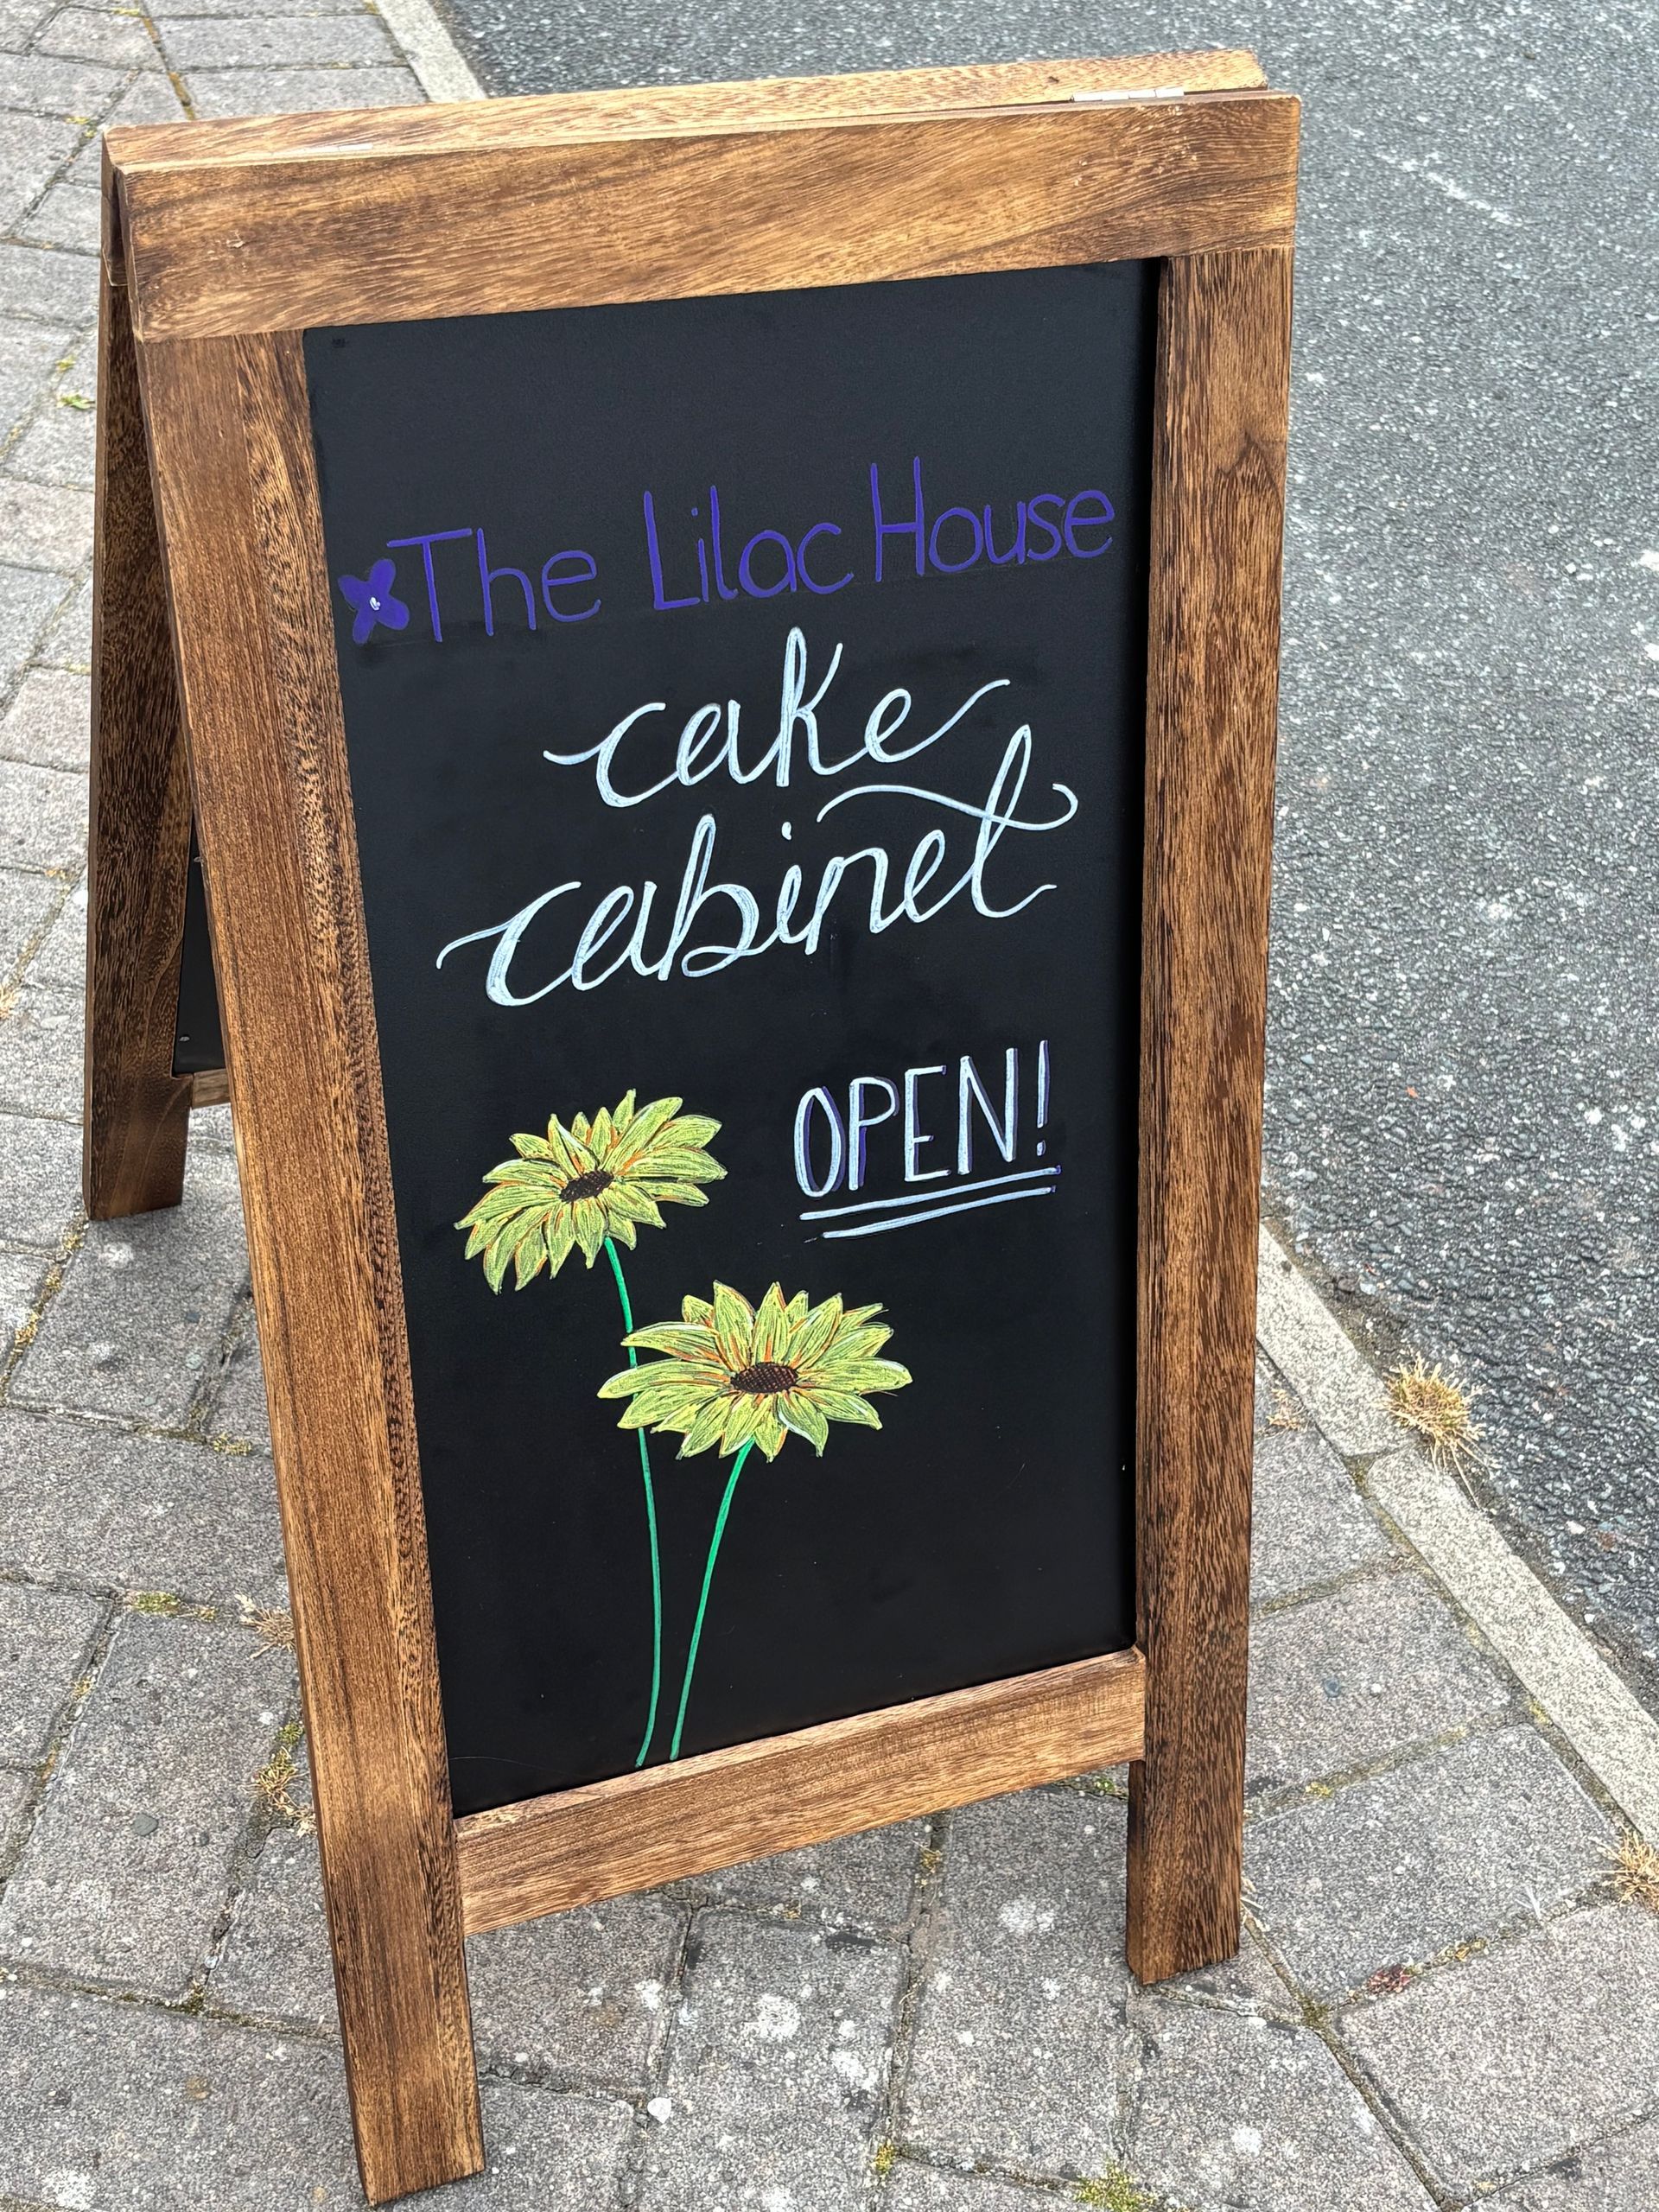 The Lilac House
cake
cabinet
OPEN!